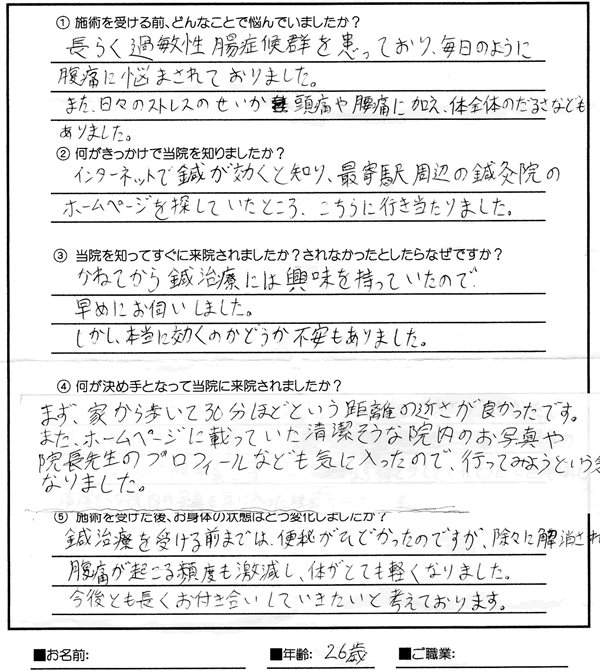 ① 施術を受ける前、どんなことで悩んでいましたか？
長らく過敏性腸症候群を患っており、毎日のように
腹痛に悩まされておりました。
また、日々のストレスのせいか頭痛や腰痛に加え、体全体のだるさなども
ありました。
② 何がきっかけで当院を知りましたか？
インターネットで鍼が効くと知り、最寄駅周辺の鍼灸院の
ホームページを探していたところ、こちらに行き当たりました。
③ 当院を知ってすぐに来院されましたか？されなかったとしたらなぜですか？
かねてから鍼治療には興味を持っていたので、
早めにお伺いしました。
しかし、本当に効くのかどうか不安もありました。
④ 何が決め手となって当院に来院されましたか？
まず、家から歩いて30分ほどという距離の近さが良かったです。
また、ホームページに載っていた清潔そうな院内のお写真や
院長先生のプロフィールなども気に入ったので、行ってみようという
なりました。
⑤ 施術を受けた後、お身体の状態はどう変化しましたか？
鍼治療を受ける前までは、便秘がひどかったのですが、除々に解消され
腹痛が起こる頻度も激減し、体がとても軽くなりました。
今後とも長くお付き合いしていきたいと考えております。
■お名前: ■年齢: 26歳 ■ご職業: